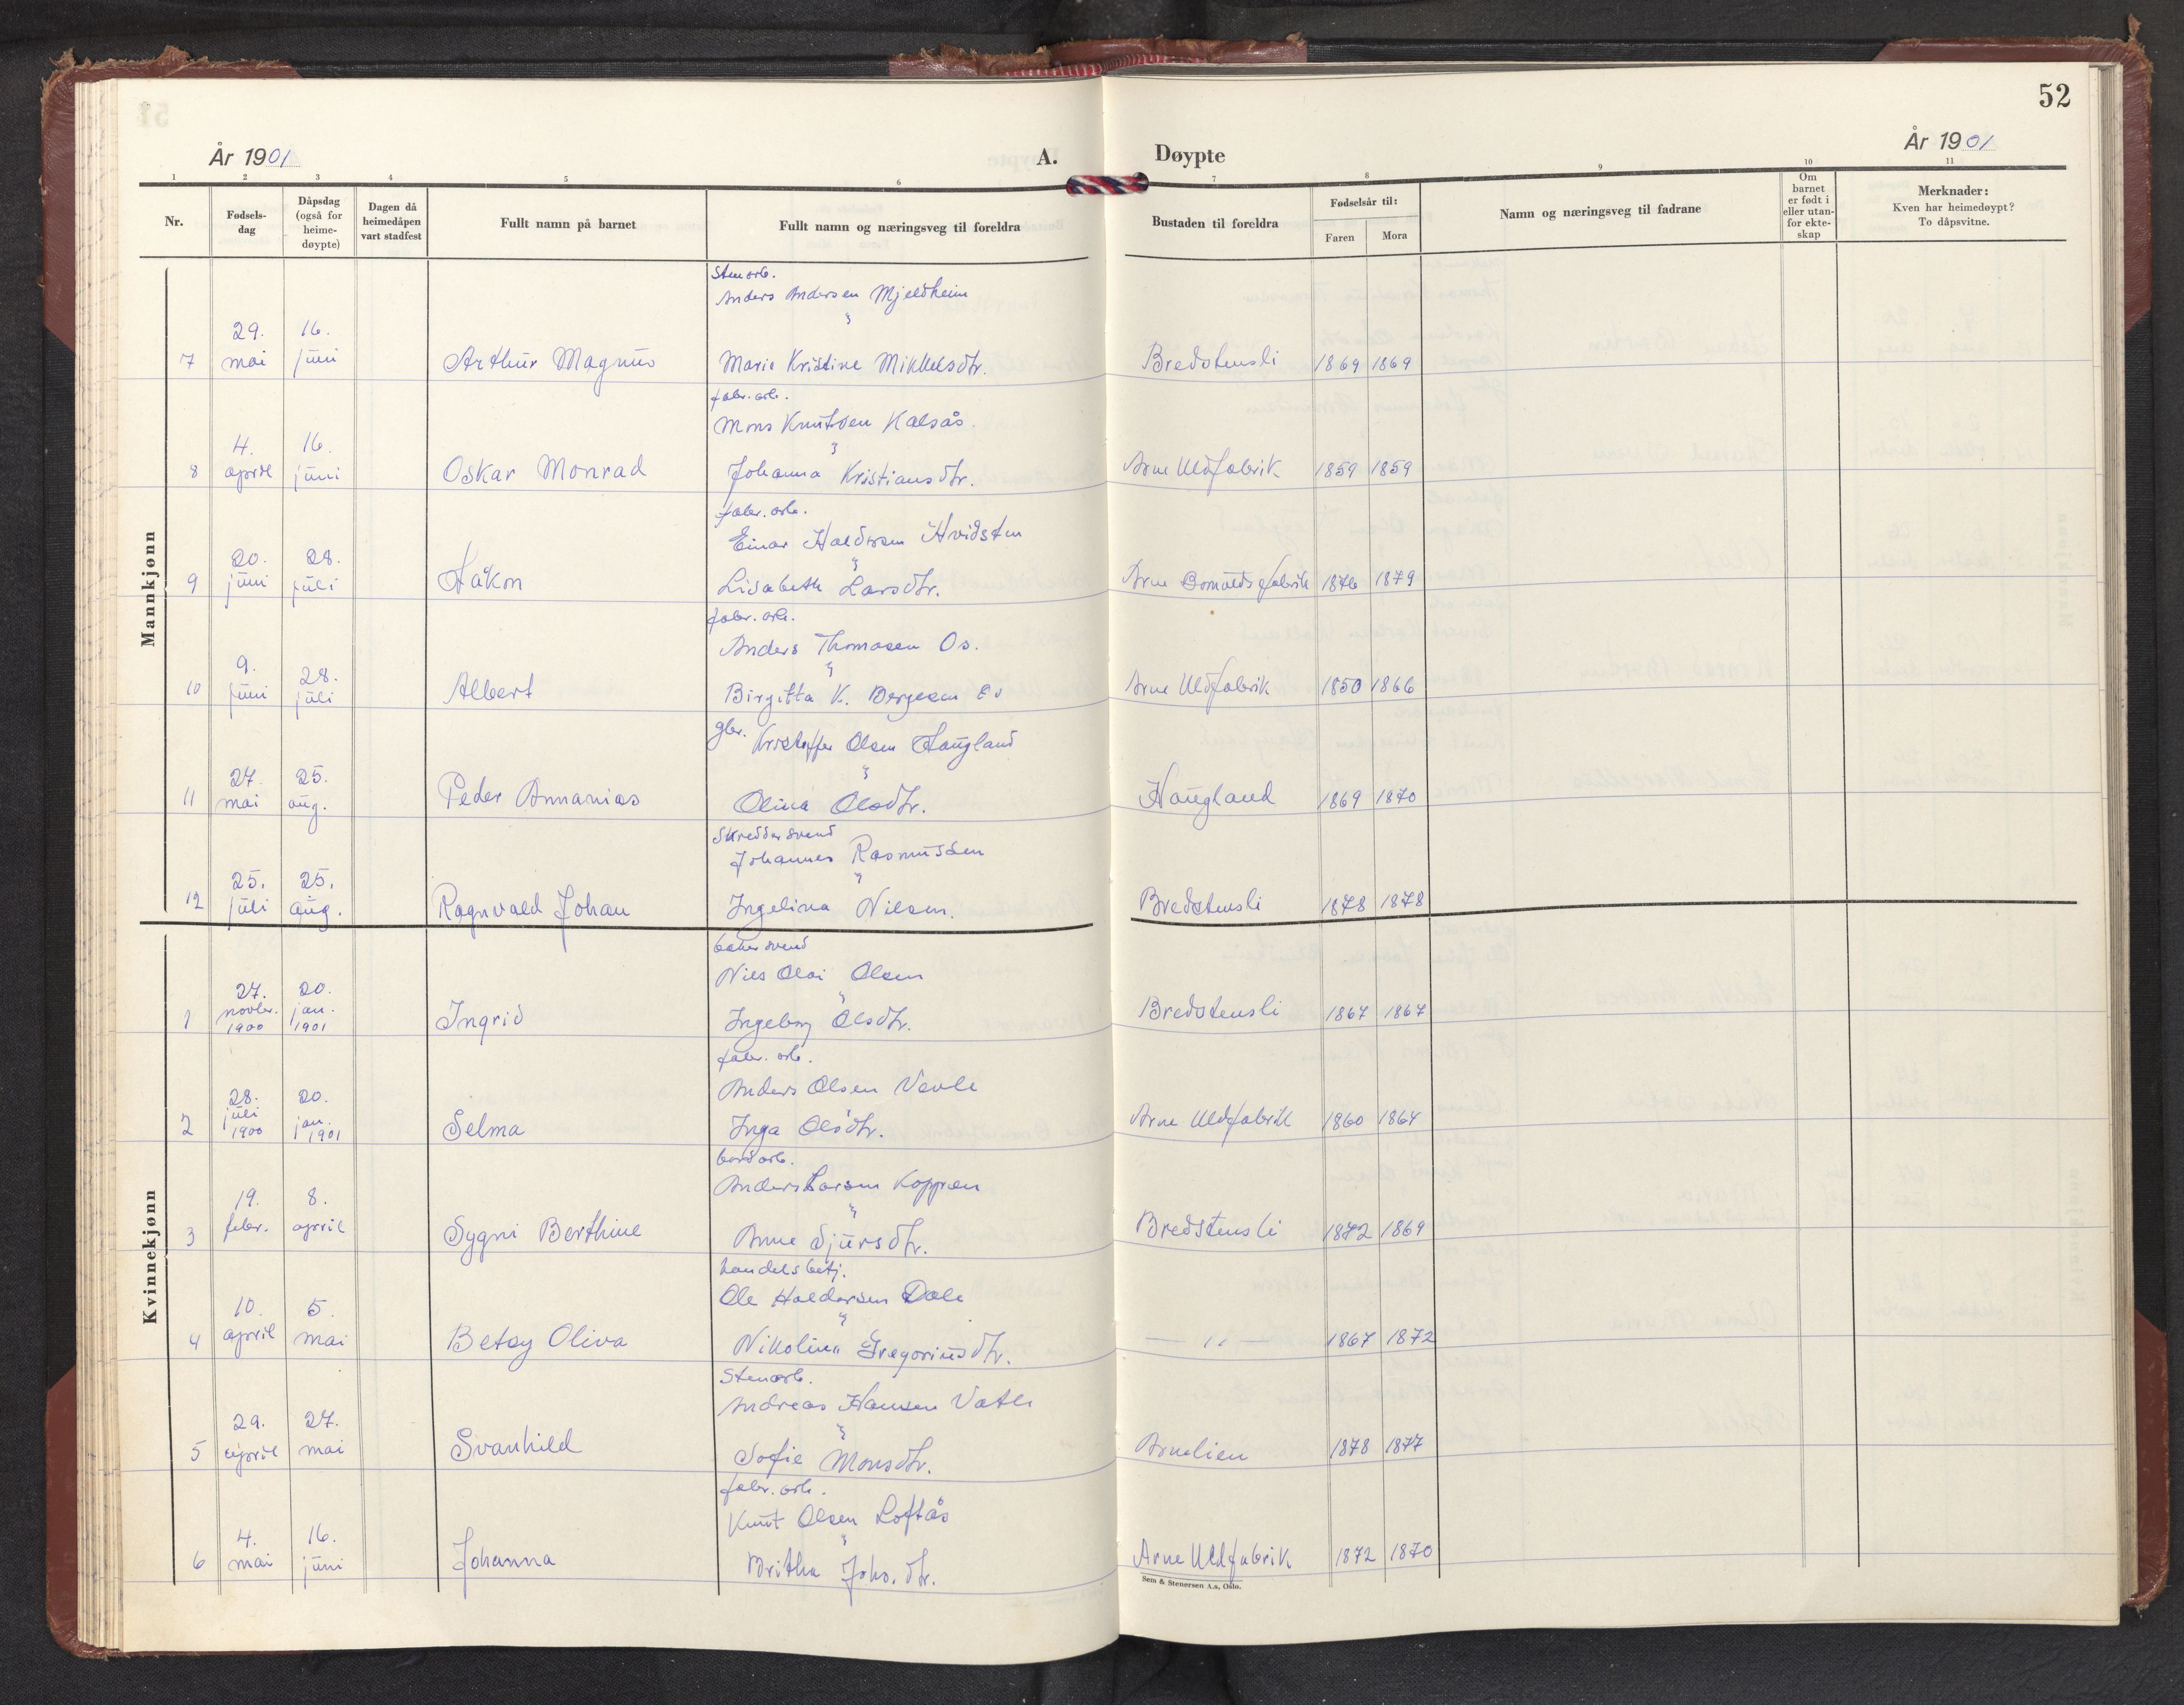 52
År 1901
A.
Døypte
År 1901
1 2 3 4 5 6 7 8 9 10 11
Nr.
Fødsels-
dag
Dåpsdag
(også for
heime-
døypte)
Dagen då
heimedåpen
vart stadfest
Fullt namn på barnet
Fullt namn og næringsveg til foreldra
Bustaden til foreldra
Fødselsår til:
Faren
Mora
Namn og næringsveg til fadrane
Om
barnet
er født i
eller utan-
for ekte-
skap
Merknader:
Kven har heimedøypt?
To dåpsvitne.
Mannkjønn
Stenarb.
Anders Andersen Mjeldheim
29. 16.
7 mai juni Arthur Magnus Marie Kristine Mikkelsdtr. Bredstensli 1869 1869
fabr. arb.
Mons Knutsen Kalsås.
4. 16.
8 april juni Oskar Monrad Johanna Kristiansdtr. Arne Uldfabrik 1859 1859
fabr. arb.
Einar Haldorsen Hvidsten
20. 28.
9 juni juli Håkon Lisabeth Larsdtr. Arne Bomulds fabrik 1876 1879
fabr. arb.
Anders Thomasen Os.
9. 28.
10 juni juli Albert Birgitta K. Bergesen Arne Uldfabrik 1850 1866
gbr. Kristoffer Olsen Haugland
27. 25.
11 mai aug. Peder Annanias Olina Olsdtr. Haugland 1869 1870
Skreddersvend
Johannes Rasmussen
25. 25.
12 juli aug. Ragnvald Johan Ingelina Nilsen. Bredstensli 1878 1878
Kvinnekjønn
bakersvend
Nils Olai Olsen
27. 20.
1 novbr. 1900 jan. 1901 Ingrid Ingeborg Olsdtr. Bredstensli 1867 1867
fabr. arb.
Anders Olsen Vevle
28. 20.
2 juli 1900 jan. 1901 Selma Inga Olsdtr. Arne Uldfabrik 1860 1864
Anders Larsen Koppen
19. 8.
3 febr. april Sygni Berthine Anne Sjursdtr. Bredstensli 1872 1869
handelsbetj.
Ole Haldorsen Dale
10. 5.
4 april mai Betsy Oliva Nikolina Gregoriusdtr. — " — 1867 1872
Stenarb.
Andreas Hansen Vatle
29. 27.
5 april mai Svanhild Sofie Monsdtr. Arnelien 1878 1877
fabr. arb.
Knut Olsen Loftås
4. 16.
6 mai juni Johanna Britha Johs. dtr. Arne Uldfabrik 1872 1870
Sem & Stenersen A.s, Oslo.